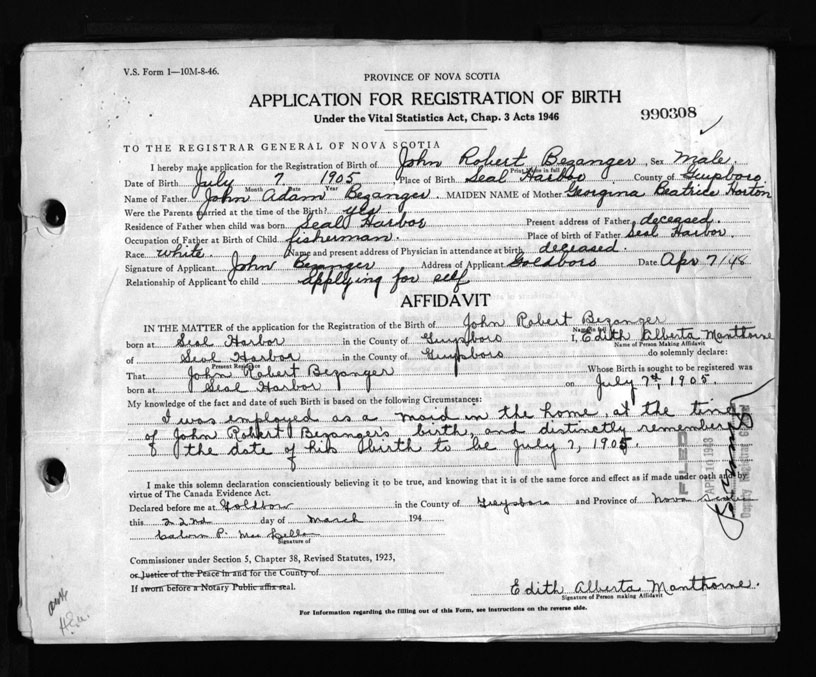 V.S. Form 1—10M-8-46.
PROVINCE OF NOVA SCOTIA
APPLICATION FOR REGISTRATION OF BIRTH
Under the Vital Statistics Act, Chap. 3 Acts 1946
990308
TO THE REGISTRAR GENERAL OF NOVA SCOTIA
I hereby make application for the Registration of Birth of John Robert Bezanger, Sex Male.
Print Name in full
Date of Birth July 7 1905, Place of Birth Seal Harbor County of Guysboro.
Month Date Year
Name of Father John Adam Bezanger. MAIDEN NAME of Mother Georgina Beatrice Horton
Were the Parents married at the time of the Birth? yes.
Residence of Father when child was born Seal Harbor Present address of Father deceased.
Occupation of Father at Birth of Child fisherman. Place of birth of Father Seal Harbor.
Race white. Name and present address of Physician in attendance at birth deceased.
Signature of Applicant John Bezanger Address of Applicant Goldboro Date Apr 7/48
Relationship of Applicant to child applying for self
AFFIDAVIT
IN THE MATTER of the application for the Registration of the Birth of John Robert Bezanger
Name in full
born at Seal Harbor in the County of Guysboro I, Edith Alberta Manthorne
Name of Person Making Affidavit
of Seal Harbor in the County of Guysboro do solemnly declare:
Present Residence
That John Robert Bezanger Whose Birth is sought to be registered was
born at Seal Harbor on July 7th 1905.
My knowledge of the fact and date of such Birth is based on the following Circumstances:
I was employed as a maid in the home, at the time
of John Robert Bezanger's birth, and distinctly remember
the date of his birth to be July 7, 1905.
FILED
APR 10 1948
Deputy Registrar General
I make this solemn declaration conscientiously believing it to be true, and knowing that it is of the same force and effect as if made under oath and by
virtue of The Canada Evidence Act.
Declared before me at Goldboro in the County of Guysboro and Province of Nova Scotia
this 22nd day of March 194
Calvin P.
Signature of
Commissioner under Section 5, Chapter 38, Revised Statutes, 1923,
or Justice of the Peace in and for the County of
If sworn before a Notary Public affix seal.
Edith Alberta Manthorne.
Signature of Person making Affidavit
For Information regarding the filling out of this Form, see instructions on the reverse side.